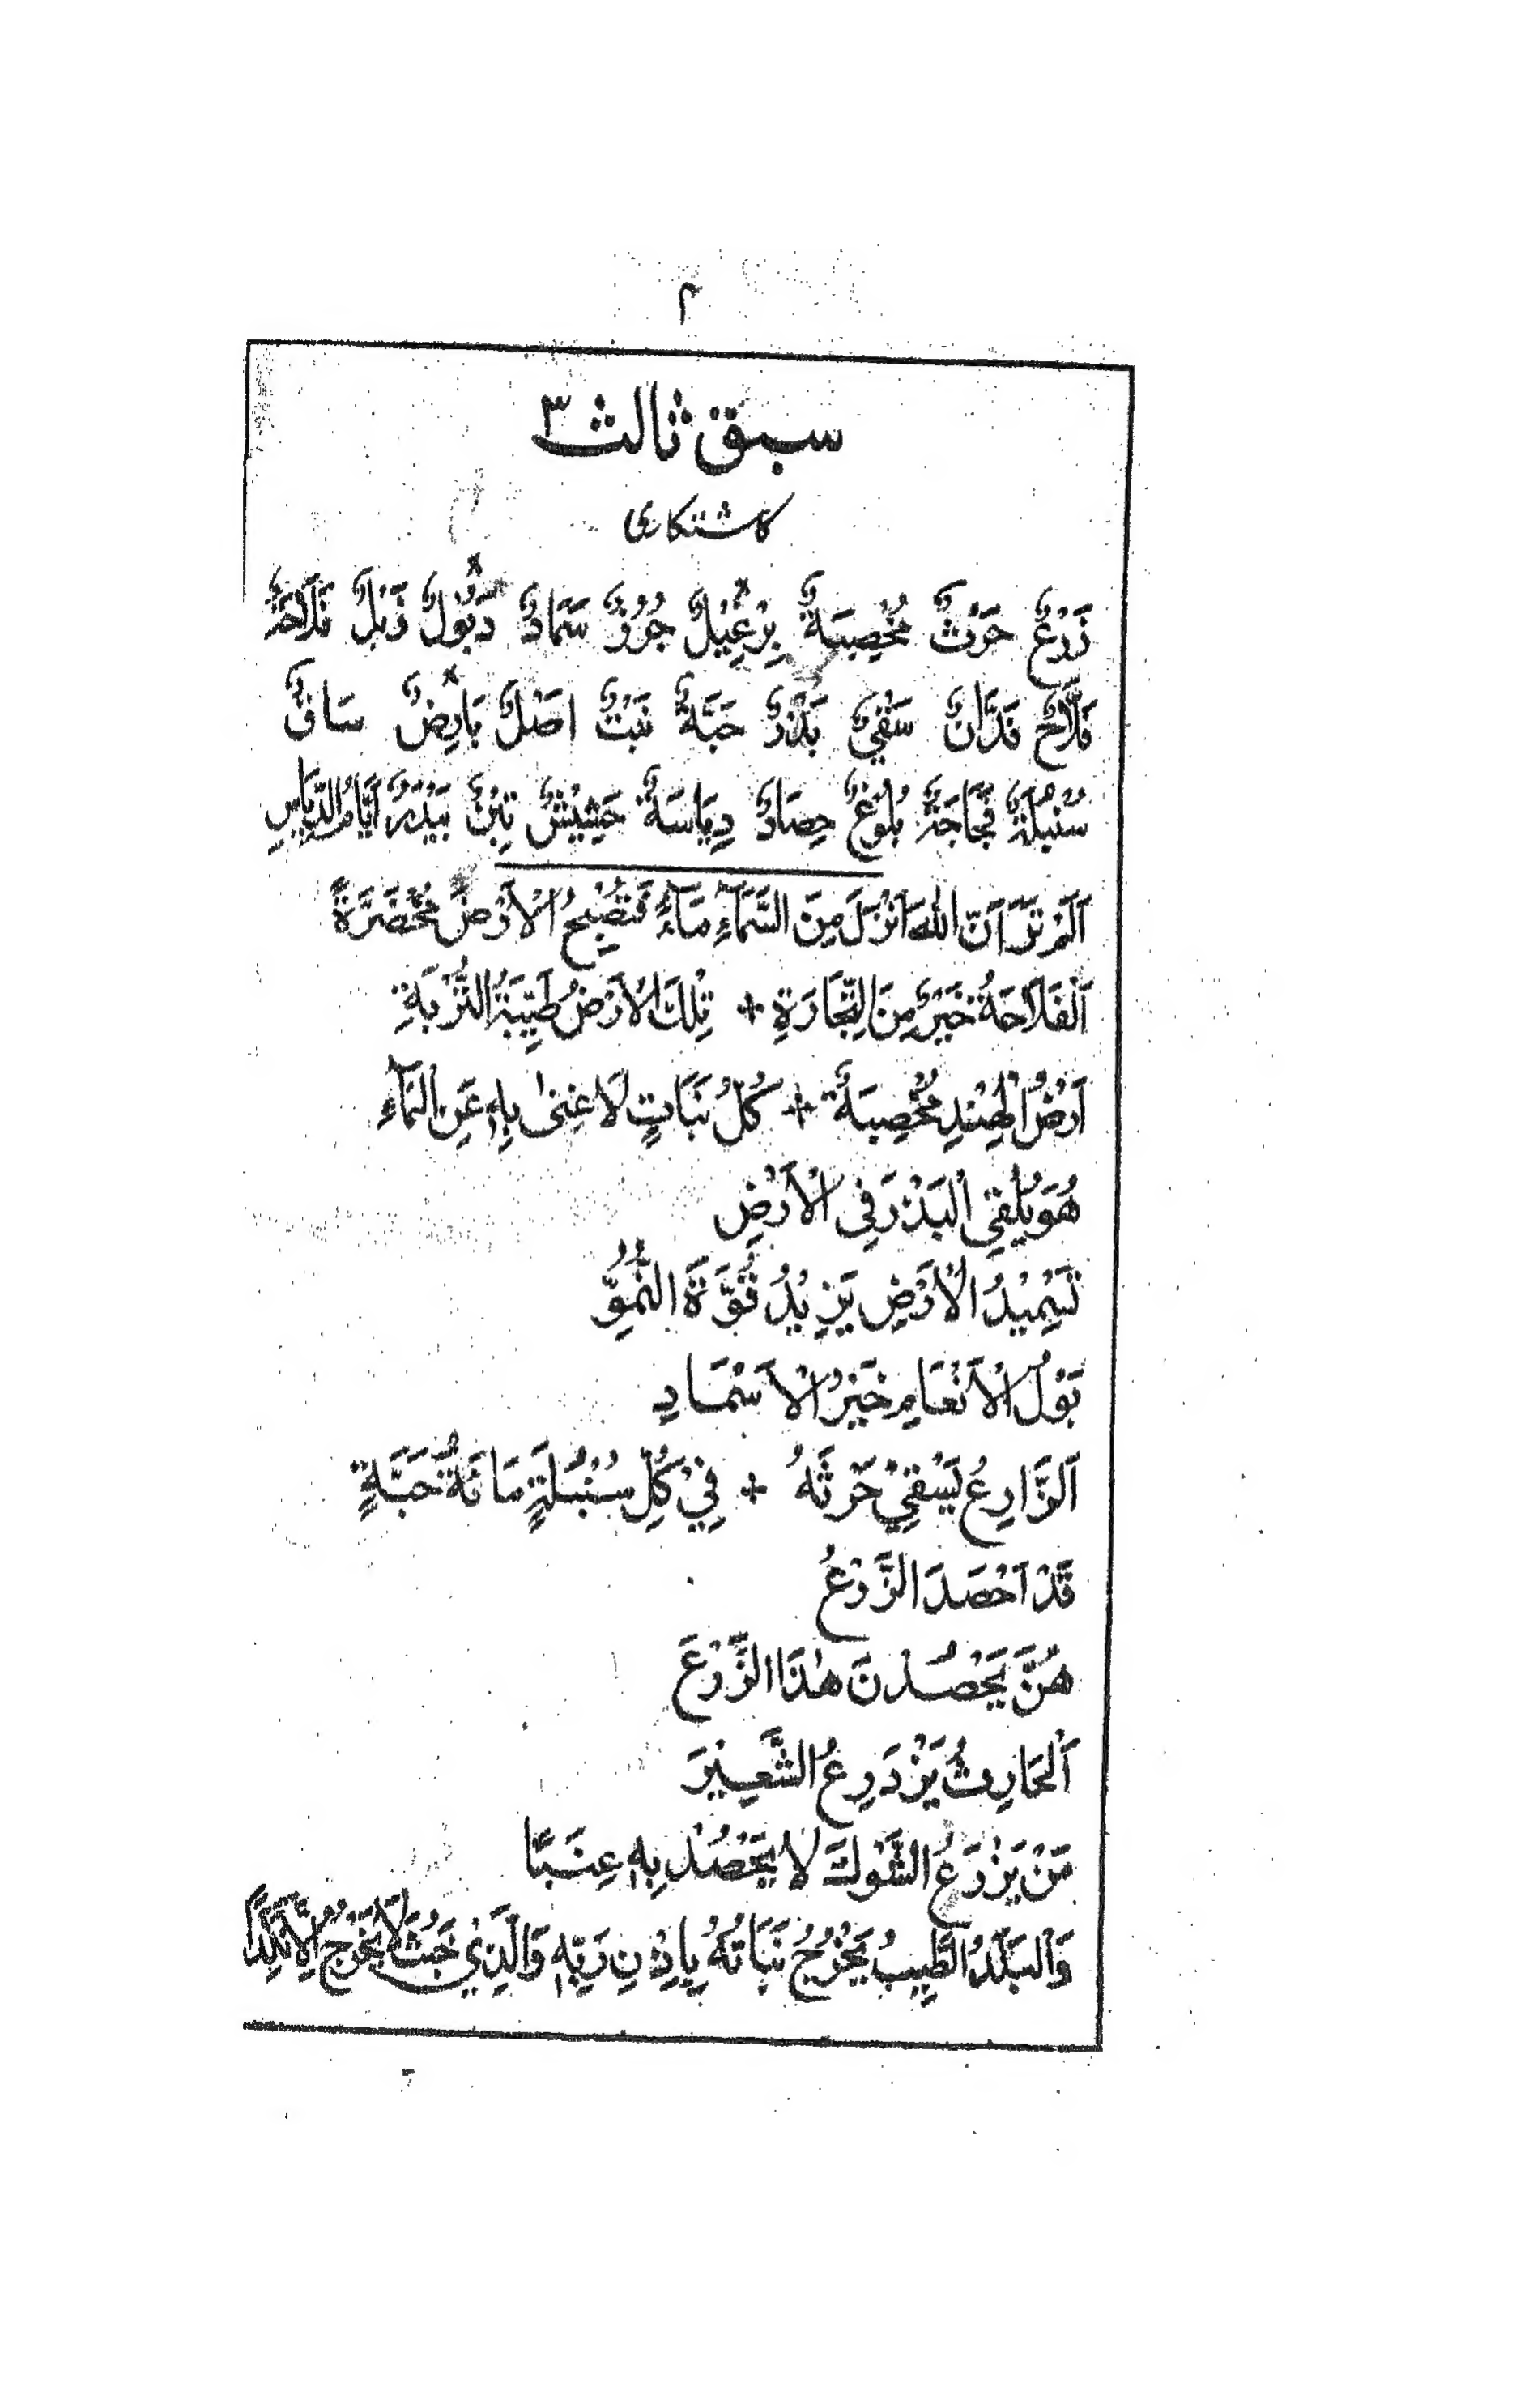 ۴
سبق ثالث ۳
کاشتکاری
زَرْعٌ حَرْثٌ مُخْصِبَةٌ بِرْغِيْلٌ جُرُزٌ سَمَادٌ دَبُوْلٌ زَبْلٌ فَلَاحَةٌ
فَلَّاحٌ فَدَّانٌ سَقْيٌ بَذْرٌ حَبَّةٌ نَبْتٌ اَصْلٌ بَارِضٌ سَاقٌ
سُنْبُلَةٌ فَجَاجَةٌ بُلُوْغٌ حِصَادٌ دِيَاسَةٌ حَشِيْشٌ تِبْنٌ بَيْدَرٌ اَيَّامُ الدِّيَاسِ
اَلَمْ تَرَ اَنَّ اللّٰهَ اَنْزَلَ مِنَ السَّمَآءِ مَآءً فَتُصْبِحُ الْاَرْضُ مُخْضَرَّةً
اَلْفَلَاحَةُ خَيْرٌ مِنَ التِّجَارَةِ + تِلْكَ الْاَرْضُ طَيِّبَةُ التُّرْبَةِ
اَرْضُ الْهِنْدِ مُخْصِبَةٌ + كُلُّ نَبَاتٍ لَا غِنٰى بِهٖ عَنِ الْمَآءِ
هُوَ يُلْقِى الْبَذْرَ فِى الْاَرْضِ
تَسْمِيْدُ الْاَرْضِ يَزِيْدُ قُوَّةَ النُّمُوِّ
بَوْلُ الْاَنْعَامِ خَيْرُ الْاَسْمَادِ
اَلزَّارِعُ يَسْقِيْ حَرْثَهُ + فِيْ كُلِّ سُنْبُلَةٍ مَائَةُ حَبَّةٍ
قَدْ اَحْصَدَ الزَّرْعُ
هُنَّ يَحْصُدْنَ هٰذَا الزَّرْعَ
اَلْحَارِثُ يَزْدَرِعُ الشَّعِيْرَ
مَنْ يَزْرَعُ الشَّوْكَ لَا يَحْصُدْ بِهٖ عِنَبًا
وَالْبَلَدُ الطَّيِّبُ يَخْرُجُ نَبَاتُهُ بِاِذْنِ رَبِّهٖ وَالَّذِيْ خَبُثَ لَا يَخْرُجُ اِلَّا نَكِدًا